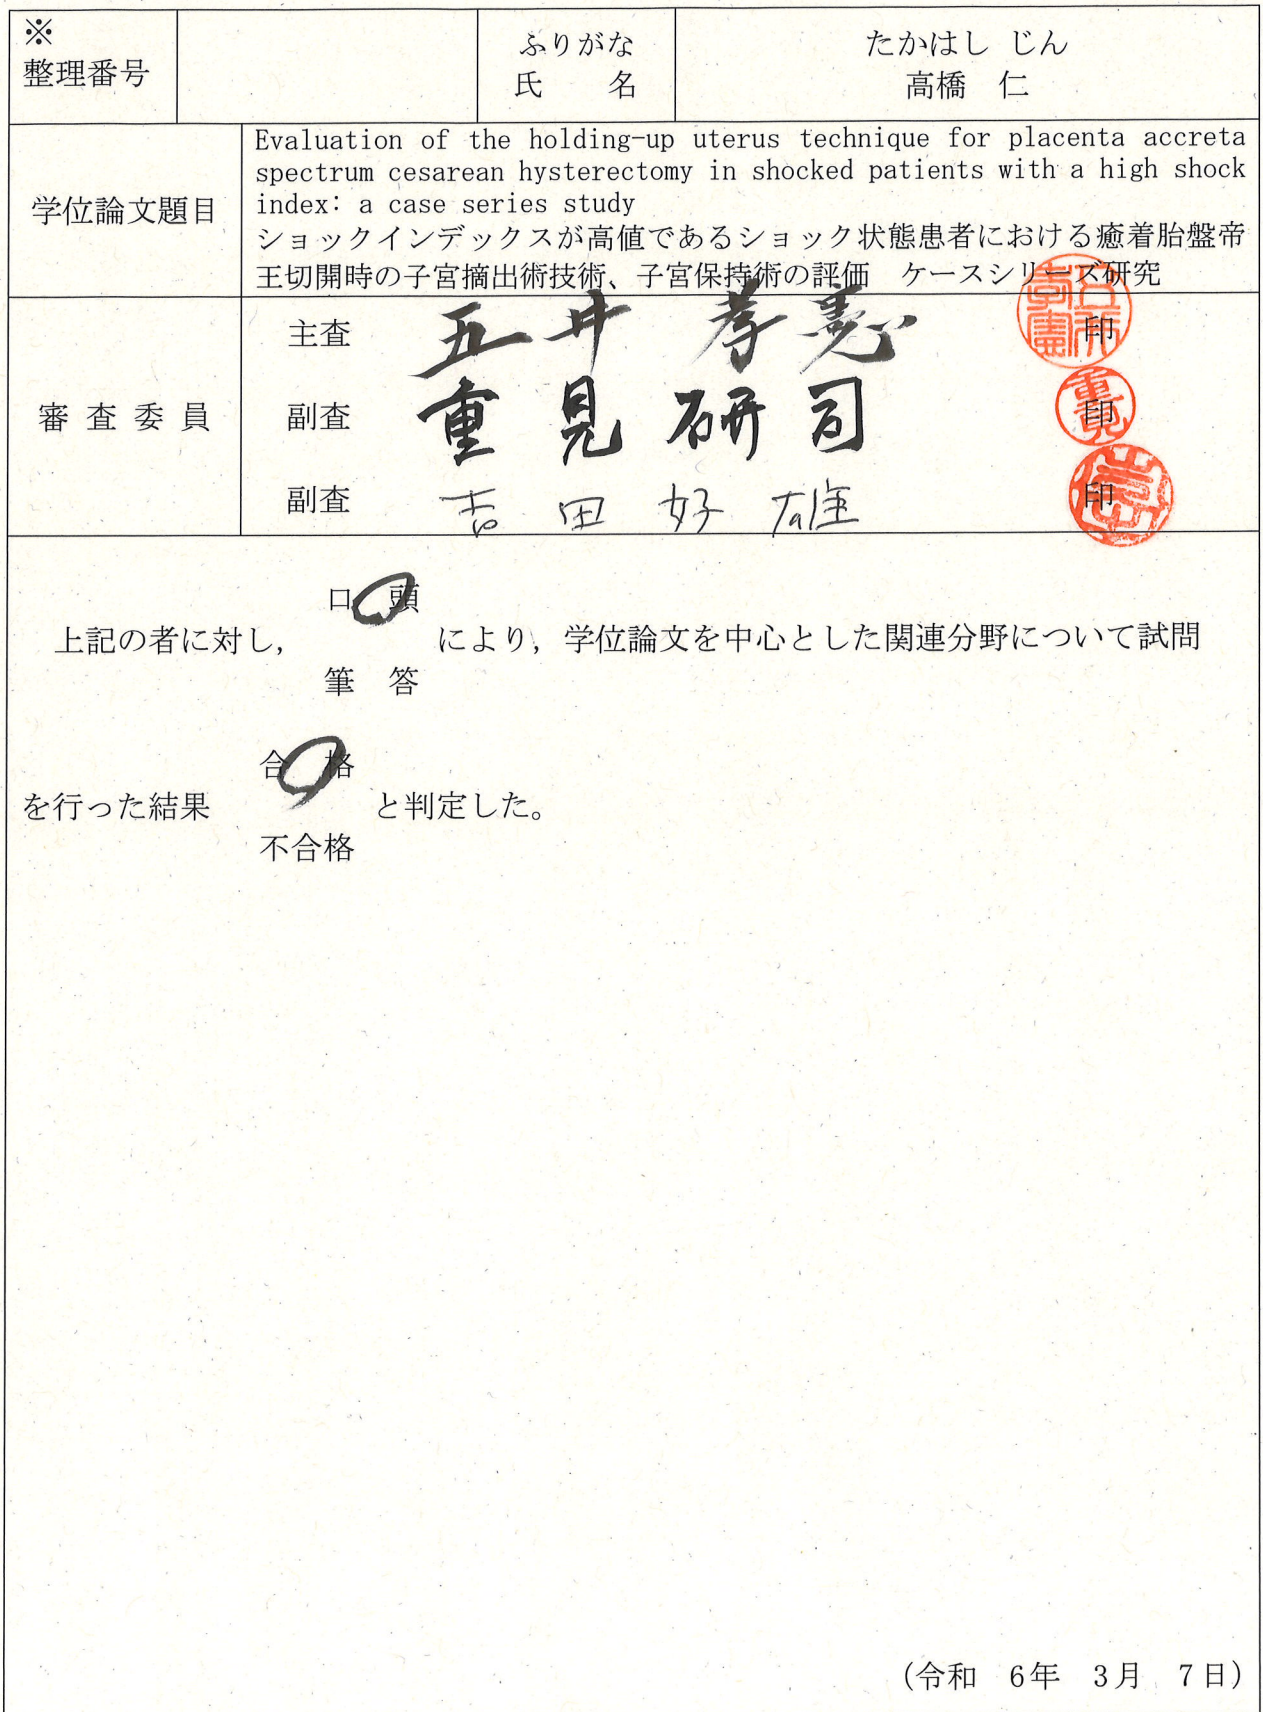 ※
整理番号
ふりがな
氏 名
たかはし じん
高橋 仁
学位論文題目
Evaluation of the holding-up uterus technique for placenta accreta
spectrum cesarean hysterectomy in shocked patients with a high shock
index: a case series study
ショックインデックスが高値であるショック状態患者における癒着胎盤帝
王切開時の子宮摘出術技術、子宮保持術の評価 ケースシリーズ研究
審査委員
主査 五井 孝憲 印
副査 重見 研司 印
副査 吉田 好雄 印
口 頭
上記の者に対し, により, 学位論文を中心とした関連分野について試問
筆 答
合 格
を行った結果 と判定した。
不合格
(令和 6年 3月 7日)